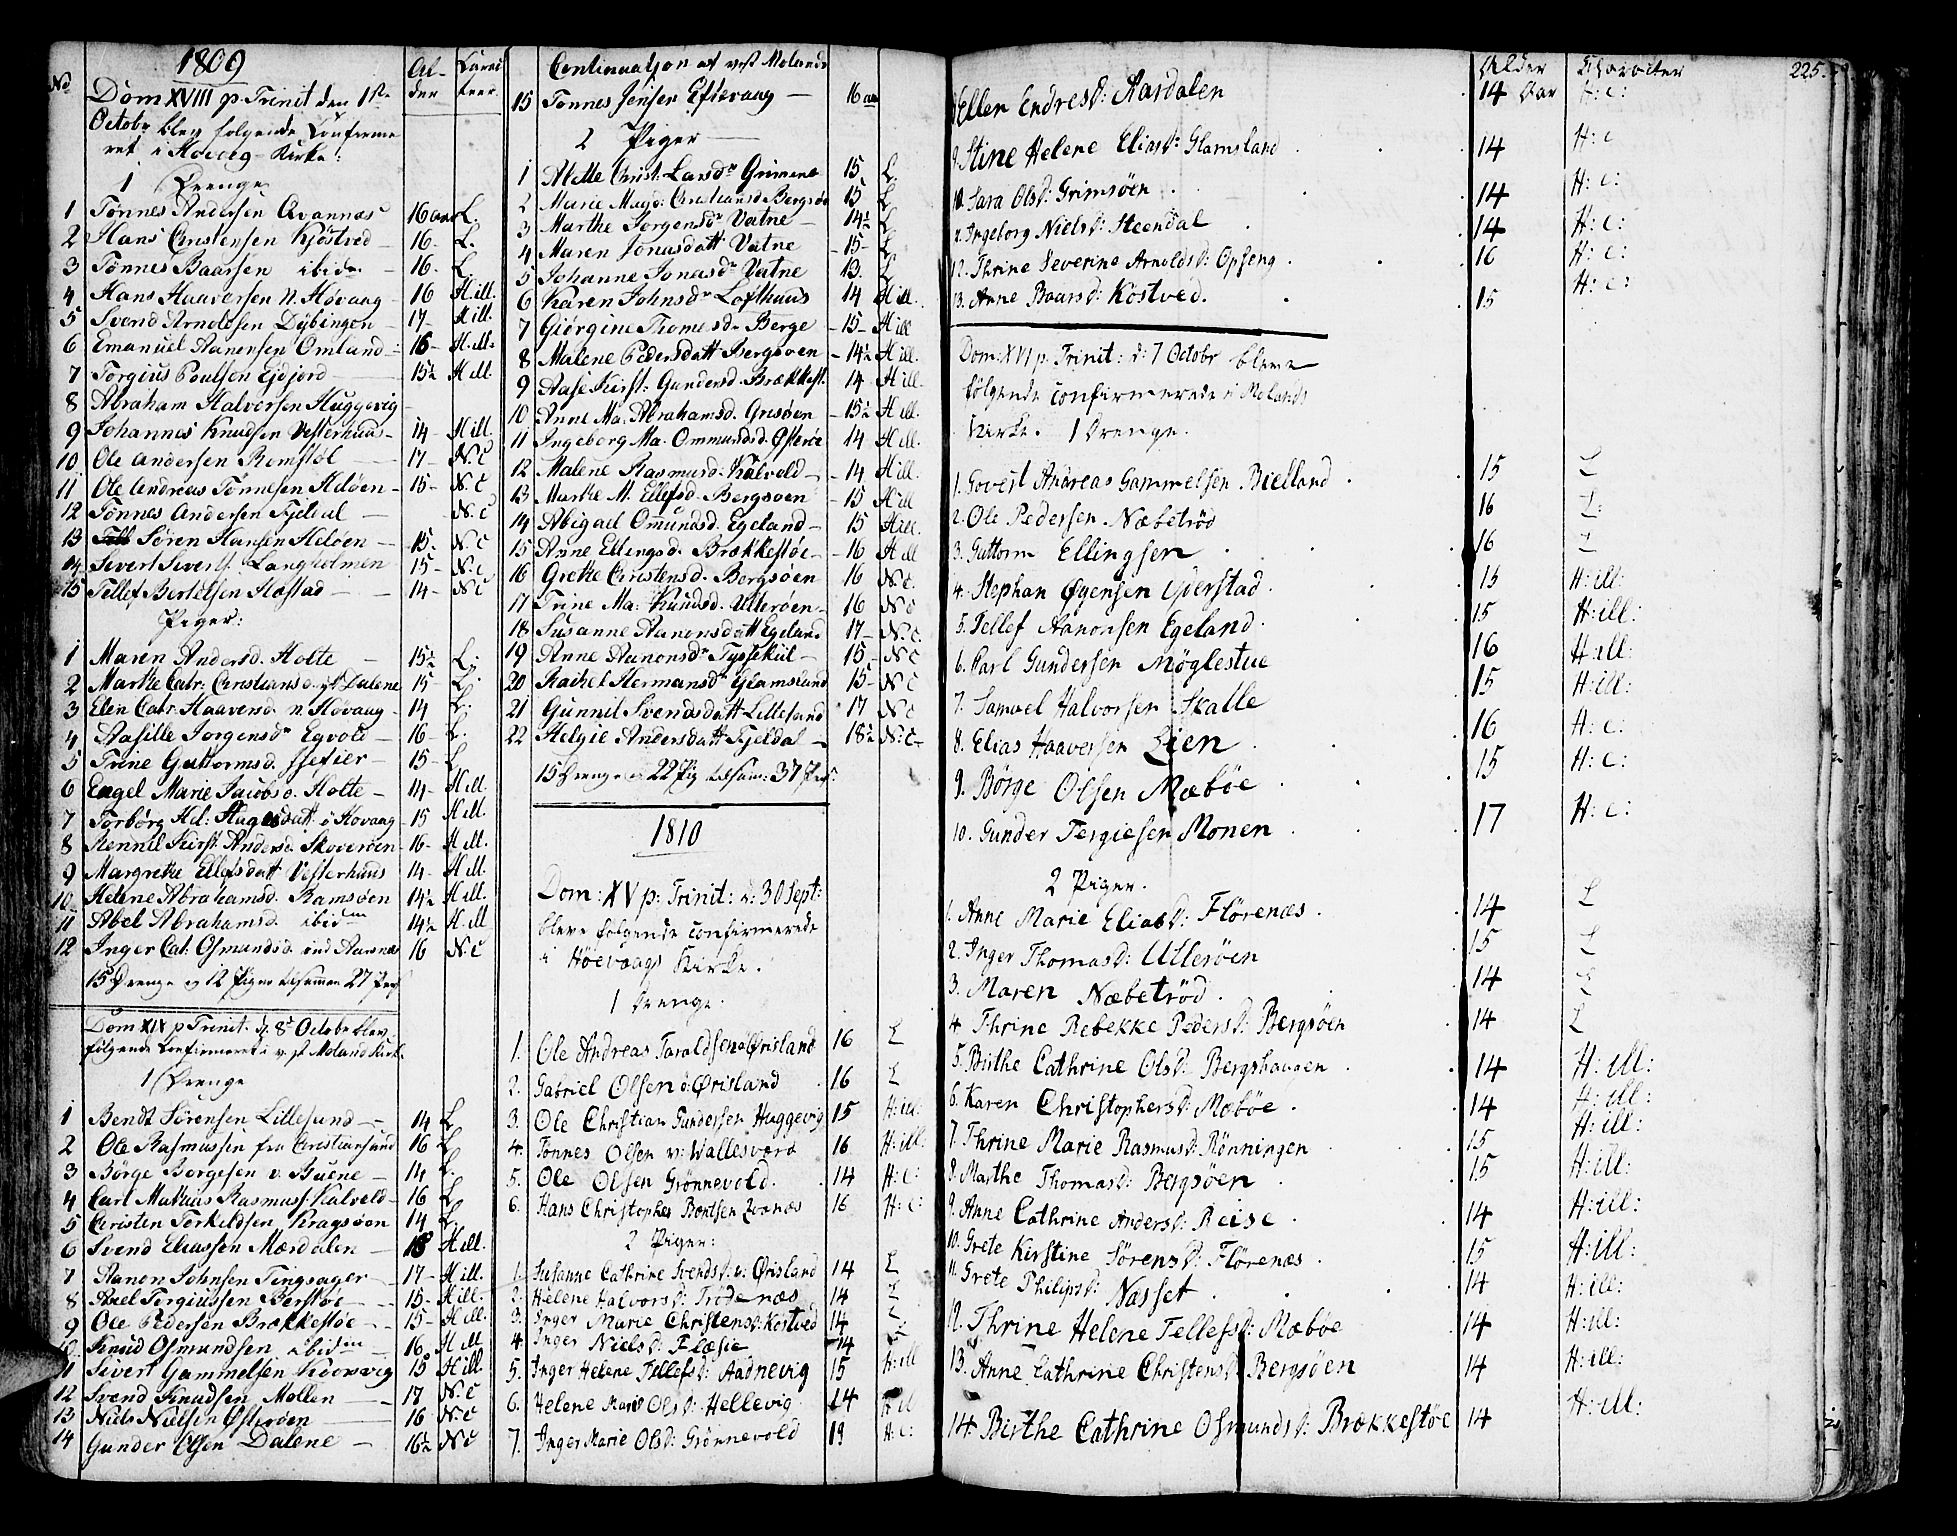 1809
No
Al-
der
Carac
teer.
Dom XVIII p. Trinit den 1ste
Octobr blev følgende Confirme
ret i Høvog-Kirke:
1 Drenge
1 Tønnes Andersen Qvannæs 16 aar L.
2 Hans Christensen Kjöstved 16 - L.
3 Tønnes Baarsen ibidm 16. L
4 Hans Haaversen N. Høvaag 16 H ill.
5 Svend Arnoldsen Dybingen 17 - H ill.
6 Emanuel Aanensen Omland 16 - H. ill.
7 Torgius Poulsen Ejdjord 15½ H ill
8 Abraham Halvorsen Huggevig
9 Johannes Knudsen Vesterhuus 14 - H ill.
10 Ole Andersen Remstøl 17 - N. C
11 Ole Andreas Tönnesen Heløen 15 - N. C
12 Tønnes Andersen Fjeldal N. C
13 Søren Hansen Heløen 15. N C
14 Sivert Siverts. Langholmen 15 - N. C
15 Tellef Bertelsen Hæstad 14 - N C
Piger:
1 Maren Andersd. Holte 15½ L.
2 Marthe Catr. Christiansd. Dalene 15 - L.
3 Elen Catr. Haaversd. N. Høvaag 14 L.
4 Aasille Jorgensdr Egvold 16 - L.
5 Trine Guttormsd. Ssefier 15 - L
6 Engel Marie Jacobsd. Holte 14 - H ill.
7 Torborg Hel: Hagesdatt. ö Høvaag 15 H ill.
8 Rennil Kirst. Andersd. Skoverøen 16 - H ill.
9 Margrethe Ellefsdatt Vesterhuus 14 - H ill.
10 Helene Abrahamsd. Ramsøen 14½ H ill.
11 Abel Abrahamsd. ibidm 14½ H ill
12 Inger Cat. Osmundsd. ind Aarnæs 16 N. C
15 Drenge og 12 Piger tilsamen 27 Pers
Dom XIX p Trinit. d. 8de Octobr blev
følgende Confirmeret i v. st Moland Kirk.
1 Drenge
1 Bendt Sörensen Lillesund 14 L.
2 Ole Rasmussen fra Christiansand 16 L.
3 Børge Børgesen v. Buene 14 L.
4 Carl Mathias Rasmuss. Kalveld 16 L.
5 Christen Terkeldsen Kragsøen 14 L.
6 Svend Eliassen Mærdalen 18 H ill.
7 Aanon Johnsen Tingsager 17 - H ill.
8 Axel Torgiussen Berstøe 15 - H ill.
9 Ole Pedersen Brækkestøe 15 - H ill.
10 Knud Osmundsen ibidm 16 H ill
11 Sivert Gammelsen Kiorvig 15 H ill
12 Svend Knudsen Mollen 17 N. C
13 Niels Nielsen Østerøen 16 N. C
14 Gunder Olsen Dalene 16½ N. C
Continuation af vest Molands
15 Tønnes Jensen Eftevaag 16 aar
2 Piger
1 Alette Christ: Larsdr Grimenæ 15 L.
2 Marie Magd: Christiansd Bergsøe 15 L
3 Marthe Jorgensdr Vatne 14½ L
4 Maren Jonasdatt Vatne 15 - L
5 Johanne Jonasdr Vatne 13. L
6 Karen Johnsdr Lofthuus 14 H ill.
7 Giørgine Thomesdr Berge 15 - H ill
8 Malene Pedersdatt Bergsøen 14½ H ill.
9 Aase Kirst: Gundersd. Brækkest. 14 H ill.
10 Anne Ma: Abrahamsd. Gresøen 15½ H ill.
11 Ingeborg Ma: Ommundsd. Østerøe 14 H ill.
12 Malene Rasmusd: Kalveld 14 H ill.
13 Marthe M. Ellefsd. Bergsøen 15 H ill
14 Abigael Omundsd. Egeland 15 H ill.
15 Anne Ellingsd. Brækkestøe 16 H ill
16 Grethe Christensd. Bergsøen 16 N. C.
17 Trine Ma: Knudsd. Ullerøen 16 N C
18 Susanne Aanonsdatt Egeland 17 - N. C.
19 Anne Aanonsdr Tyssekiil 15 - N C
20 Rachel Hermansdr Glamsland 15 - N C
21 Gunnil Svendsdatt Lillesund 17 N C
22 Helgie Andersdatt Fjeldal 18½ N. C.
15 Drenge og 22 Pig tilsam: 37 Pers:
1810
Dom: XV p: Trinit: d: 30 Sept:
bleve følgende confirmerede
i Høevaags Kirke.
1 Drenge.
1. Ole Andreas Taraldsen ö Ørisland 16 L
2. Gabriel Olsen ö: Ørisland 16 L
3. Ole Christian Gundersen Huggevig 15 H: ill:
4. Tønnes Olsen v: Wallesværd 16 H: ill:
5. Ole Olsen Grønnevold. 14 H: C:
6. Hans Christopher Berntsen Qvanæs 16 H: C:
2 Piger:
1. Susanne Cathrine Svendsd: v: Ørisland 14 L
2. Helene Halvorsd: Trødenæs 14 L
3. Inger Marie Christensd: Kostved 14 L
4. Inger Nielsd: Flæsie 14 L
5. Inger Helene Tellefsd: Aadnevig 15 H: ill
6. Helene Marie Olsd: Hellevig 14 H: ill
7. Inger Marie Olsd: Grønnevold 19 H: C:
Alder Character 225.
8. Ellen Endresd: Aardalen 14 Aar H: C:
9. Stine Helene Eliasd: Glamsland 14 H: C
10. Sara Olsd: Grimsøen 14 H: C:
11. Ingeborg Nielsd: Steendal 14 H: C:
12. Thrine Severine Arnoldsd: Opseng 16 H: C:
13. Anne Baarsd: Köstved. 15 H: C:
Dom: XVI p. Trinit: d: 7 Octobr bleve
følgende confirmerede i Molands
Kirke. 1 Drenge.
1. Govert Andreas Gammelsen Bielland 15 L
2. Ole Pedersen Næbetröd 16 L:
3. Guttorm Ellingsen 16 L
4. Stephan Øgensen Yderstad. 15 H: ill:
5. Tellef Aanonsen Egeland. 15 H: ill:
6. Carl Gundersen Möglestue 16 H: ill:
7. Samuel Halvorsen Skalle 15 H: ill:
8. Elias Haaversen Lien 16 H: C:
9. Børge Olsen Mæbøe 15 H: C:
10. Gunder Tergiesen Monen 17 H: C:
2 Piger.
1. Anne Marie Eliasd: Flörenæs. 14 L
2. Inger Thomasd: Ullerøen 15 L
3. Maren Næbetröd. 14 L
4. Thrine Rebekke Pedersd: Bergsøen 14 L
5. Birthe Cathrine Olsd: Bergshaugen 14 H: ill:
6. Karen Christophersd: Mæbøe 14 H: ill:
7. Thrine Marie Rasmusd: Rönningen 15 H: ill:
8. Marthe Thomasd: Bergsøen 15 H: ill:
9. Anne Cathrine Andersd: Reise 14 H: ill:
10. Grete Kirstine Sörensd: Flörenæs 15 H: ill:
11. Grete Philipsd: Nasset 14 H: ill:
12. Thrine Helene Tellefsd: Mæbøe 14 H: ill:
13. Anne Cathrine Christensd: Bergsøen 14 H: ill:
14. Berthe Cathrine Osmundsd: Brækkestøe 14 H: ill: